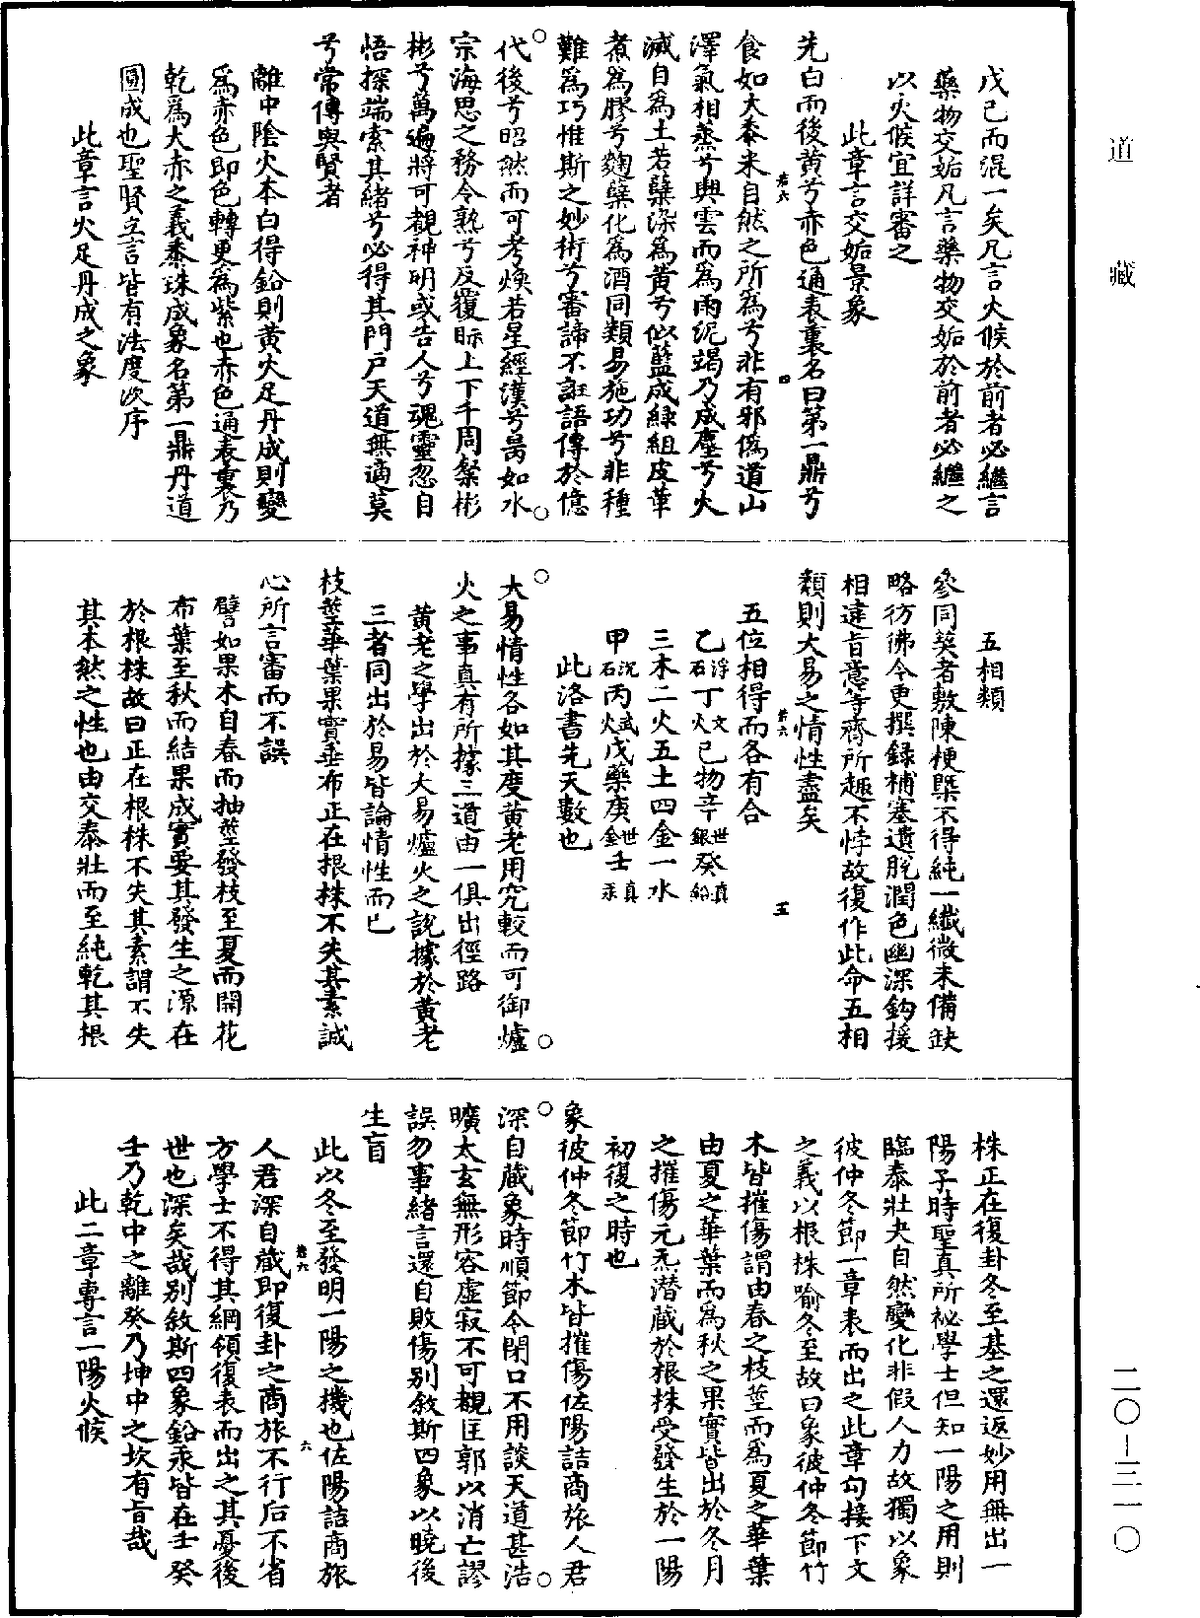 道藏
二〇—三一〇
戊己而混一矣凡言火候於前者必繼言
藥物交姤凡言藥物交姤於前者必繼之
以火候宜詳審之
此章言交姤景象
先白而後黃兮赤色通表裏名曰第一鼎兮
食如大黍米自然之所為兮非有邪偽道山
澤氣相蒸兮興雲而為雨泥竭乃成塵兮火
滅自為土若蘗染為黃兮似藍成綠組皮革
煮為膠兮麴蘗化為酒同類易施功兮非種
難為巧惟斯之妙術兮審諦不誑語傳於億
代後兮昭然而可考煥若星經漢兮昺如水
宗海思之務令熟兮反覆眎上下千周粲彬
彬兮萬遍將可覩神明或告人兮魂靈忽自
悟探端索其緒兮必得其門戶天道無適莫
兮常傳與賢者
離中陰火本白得鉛則黃火足丹成則變
為赤色即色轉更為紫也赤色通表裏乃
乾為大赤之義黍珠成象名第一鼎丹道
圓成也聖賢立言皆有法度次序
此章言火足丹成之象
五相類
參同契者敷陳梗槩不得純一纖微未備缺
略彷彿今更撰錄補塞遺脫潤色幽深鉤援
相逮旨意等齊所趣不悖故復作此命五相
類則大易之情性盡矣
五位相得而各有合
乙浮石丁文火己物辛世銀癸真鉛
三木二火五土四金一水
甲沉石丙武火戊藥庚世金壬真汞
此洛書先天數也
大易情性各如其度黃老用究較而可御爐
火之事真有所據三道由一俱出徑路
黃老之學出於大易爐火之說據於黃老
三者同出於易皆論情性而已
枝莖華葉果實垂布正在根株不失其素誠
心所言審而不誤
譬如果木自春而抽莖發枝至夏而開花
布葉至秋而結果成實要其發生之源在
於根株故曰正在根株不失其素謂不失
其本然之性也由交泰壯而至純乾其根
株正在復卦冬至基之還返妙用無出一
陽子時聖真所祕學士但知一陽之用則
臨泰壯夬自然變化非假人力故獨以象
彼仲冬節一章表而出之此章勾接下文
之義以根株喻冬至故曰象彼仲冬節竹
木皆摧傷謂由春之枝莖而為夏之華葉
由夏之華葉而為秋之果實皆出於冬月
之摧傷元炁潛藏於根株受發生於一陽
初復之時也
象彼仲冬節竹木皆摧傷佐陽詰商旅人君
深自藏象時順節令閉口不用談天道甚浩
曠太玄無形容虛寂不可覩匡郭以消亡謬
誤勿事緒言還自敗傷別敘斯四象以曉後
生盲
此以冬至發明一陽之機也佐陽詰商旅
人君深自藏即復卦之商旅不行后不省
方學士不得其綱領復表而出之其憂後
世也深矣哉別敘斯四象鉛汞皆在壬癸
壬乃乾中之離癸乃坤中之坎有旨哉
此二章專言一陽火候